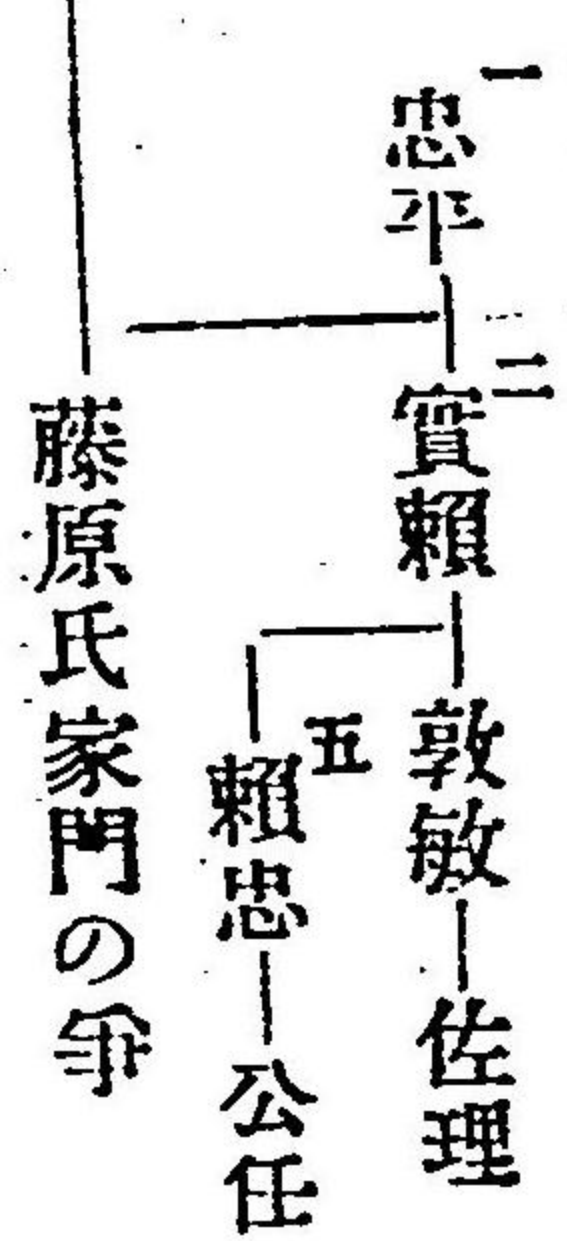 一
忠平
二
實賴
敦敏
佐理
五
賴忠
公任
藤原氏家門の爭